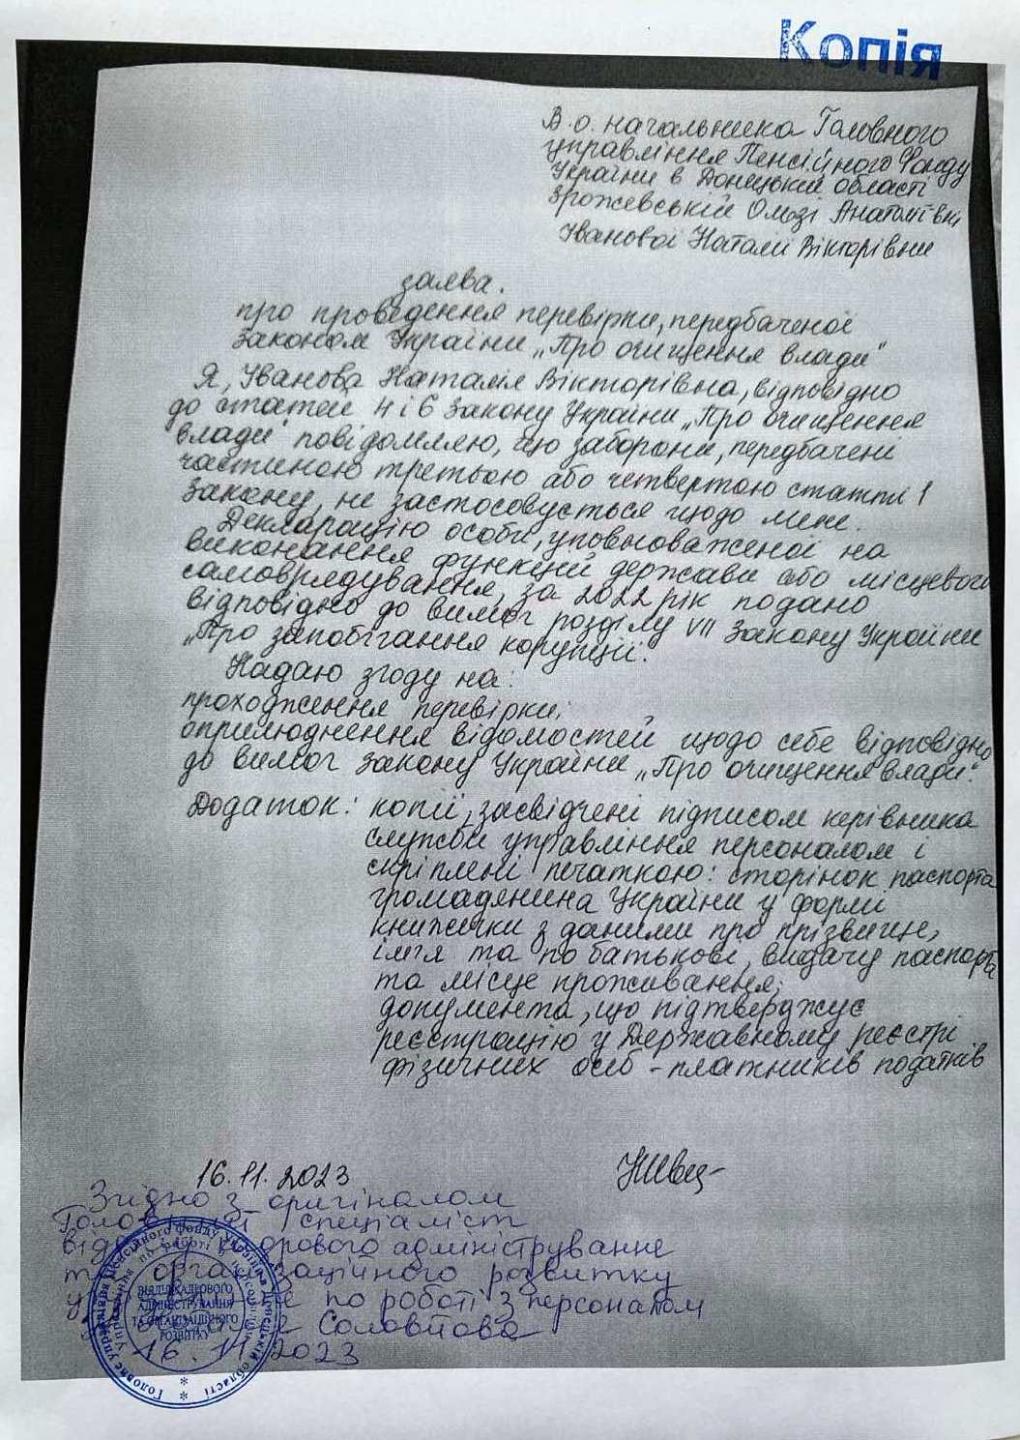 Копія
В.о. начальника Головного
управління Пенсійного Фонду
України в Донецькій області
Зрожевській Ользі Анатоліївні
Іванової Наталії Вікторівни
заява.
про проведення перевірки, передбаченої
законом України „Про очищення влади"
Я, Іванова Наталія Вікторівна, відповідно
до статей 4 і 6 Закону України „Про очищення
влади" повідомляю, що заборони, передбачені
частиною третьою або четвертою статті 1
Закону, не застосовується щодо мене.
Декларацію особи, уповноваженої на
виконання функцій держави або місцевого
самоврядування, за 2022 рік подано
відповідно до вимог розділу VII Закону України
„Про запобігання корупції".
Надаю згоду на:
проходження перевірки;
оприлюднення відомостей щодо себе відповідно
до вимог Закону України „Про очищення влади".
Додаток: копії, засвідчені підписом керівника
служби управління персоналом і
скріплені печаткою: сторінок паспорта
громадянина України у формі
книжечки з даними про прізвище,
ім'я та по батькові, видачу паспорта
та місце проживання;
документа, що підтверджує
реєстрацію у Державному реєстрі
фізичних осіб - платників податків
16.11.2023
Згідно з оригіналом
Головний спеціаліст
відділу кадрового адміністрування
та організаційного розвитку
управління по роботі з персоналом
Соловйова
16.11.2023
Головне управління Пенсійного фонду України в Донецькій області
Управління по роботі з персоналом
ВІДДІЛ КАДРОВОГО
АДМІНІСТРУВАННЯ
ТА ОРГАНІЗАЦІЙНОГО
РОЗВИТКУ